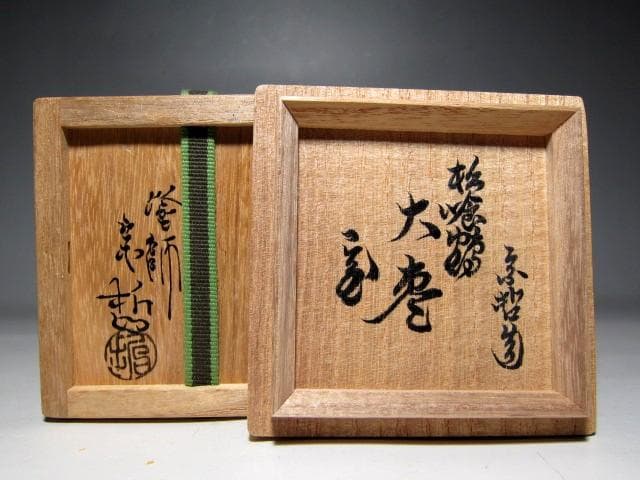 宗哲造
松喰鶴
大棗
塗師
宗哲